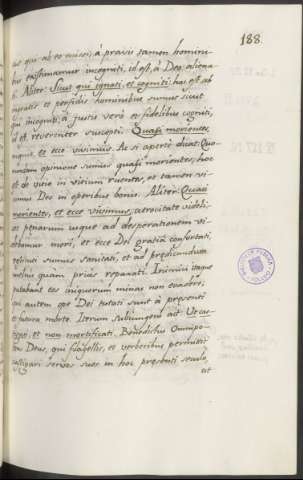 188.
us qui ab eo missi, à pravis tamen homini-
bus existimamur incogniti, id est, à Deo aliena-
ti. Aliter: Sicut qui ignoti, et cogniti: hoc est ab
ingratis et perfidis hominibus sumus sicut
qui incogniti, à justis verò et fidelibus cogniti,
et reverenter suscepti. Quasi morientes,
inquit, et ecce vivimus. Ac si aperte dicat: Quo-
rumdam opinione sumus quasi morientes, hoc
est de vitio in vitium ruentes, et tamen vi-
vimus Deo in operibus bonis. Aliter: Quasi
morientes, et ecce vivimus, atrocitate videli-
cet penarum usque ad desperationem vi-
debamur mori, et ecce Dei gratiâ confortati,
restituti sumus sanitati, et ad prædicandum
melius quam prius reparati. Inimici itaque
putabant eos iniquorum minas non evadere;
qui autem ope Dei tutati sunt à præsenti
et futura morte. Iterum subiungens ait: Ut cas-
tigati, et non mortificati. Benedictus Omnipo-
tens Deus, qui flagellis, et verberibus permittit
castigari servos suos in hoc præsenti seculo,
ut